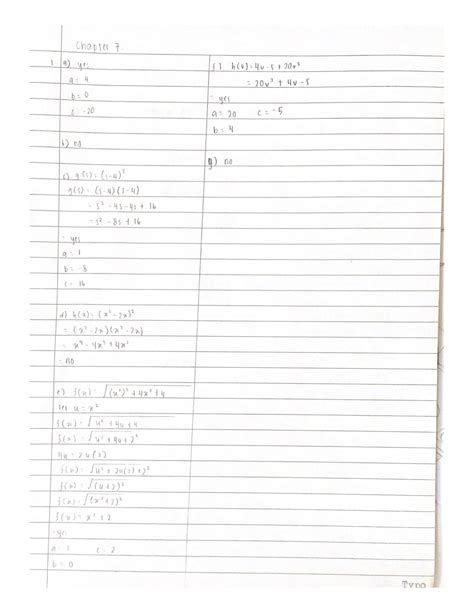 Chapter 7
1. a) yes
a = 4
b = 0
c = -20
b) no
c) g(s) = (s-4)²
g(s) = (s-4)(s-4)
= s² - 4s - 4s + 16
= s² - 8s + 16
= yes
a = 1
b = -8
c = 16
d) h(x) = (x² - 2x)²
= (x² - 2x)(x² - 2x)
= x⁴ - 4x³ + 4x²
= no
e) f(x) = √(x²)² + 4x² + 4
let u = x²
f(x) = √u² + 4u + 4
f(x) = √u² + 4u + 2²
4u = 2u(2)
f(x) = √u² + 2u(2) + 2²
f(x) = √(u+2)²
f(x) = √(x²+2)²
f(x) = x² + 2
= yes
a = 1 c = 2
b = 0
f) h(v) = 4v - 5 + 20v²
= 20v² + 4v - 5
= yes
a = 20 c = -5
b = 4
g) no
Typo